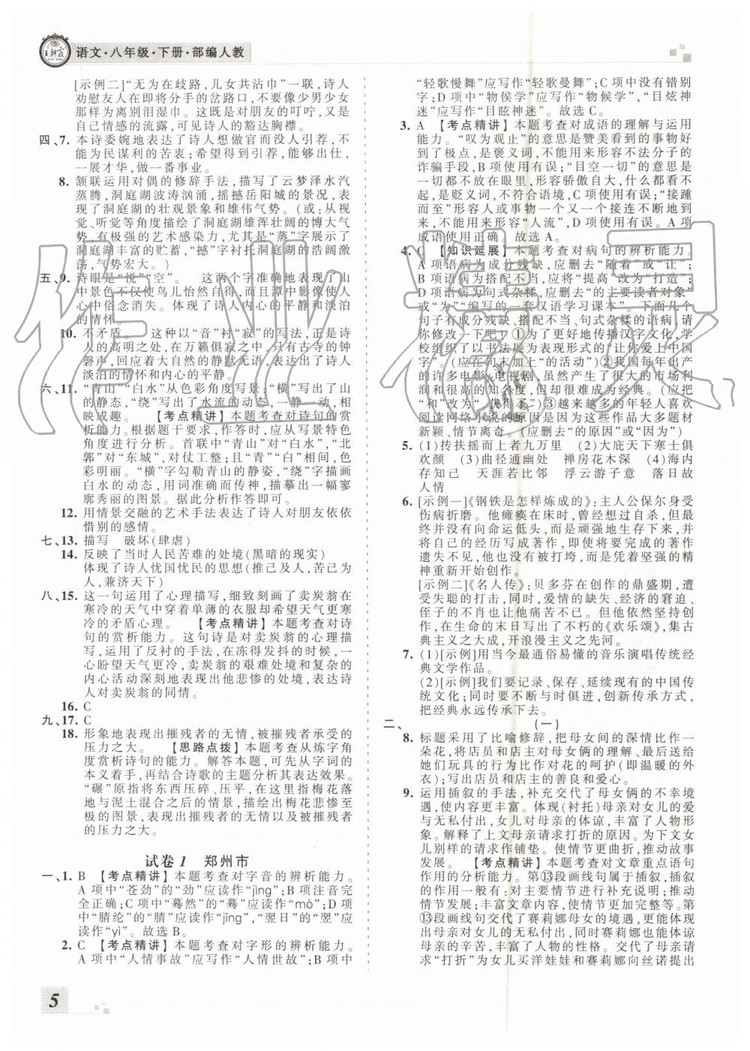 王朝霞
语文·八年级·下册·部编人教
[示例二]“无为在歧路，儿女共沾巾”一联，诗人
劝慰友人在即将分手的岔路口，不要像少男少女
那样为离别泪湿巾。这既是对朋友的叮咛，又是
自己情感的流露，可见诗人的豁达胸襟。
四、7. 本诗委婉地表达了诗人想做官而没人引荐，不
能为民谋利的苦衷；希望得到引荐，能够出仕，
一展才华，做一番事业。
8. 颔联运用对偶的修辞手法，描写了云梦泽水汽
蒸腾，洞庭湖波涛汹涌，摇撼岳阳城的景况，表
现了洞庭湖的壮观景象和雄伟气势。(或：从视
觉、听觉等角度描绘了洞庭湖雄浑壮阔的博大气
势，有极强的艺术感染力，尤其是“蒸”字展示了
洞庭湖丰厚的贮蓄，“撼”字衬托洞庭湖的浩阔
荡，气势宏大。)
五、9. 诗眼是“悦”“空”。 这两个字准确地表现了山
中景色不仅使鸟儿怡然自得，而且潭中影像使人
心中俗念消失。体现了诗人宁静的内心和淡泊
的情怀。
10. 不矛盾。 这种以“音”衬“寂”的写法，正是诗人
艺术审美的体现，在万籁俱寂之中，只有古寺的钟
磬声，回应着大自然的静默无语，表达了诗人
淡泊的情怀和内心的平静。
六、11. “青山”“白水”从色彩角度写景；“横”写出了山
的静态，“绕”写出了水流的动态，一静一动，相
映成趣。 【考点精讲】本题考查对诗句的赏
析能力。根据题干要求，作答时，应从写景特色
角度进行分析。首联中“青山”对“白水”，“北
郭”对“东城”，对仗工整；且“青”“白”相间，色
彩明丽。“横”字勾勒青山的静姿，“绕”字描绘
白水的动态，用词准确而传神，描摹出一幅寥
廓秀丽的图景。据此分析作答即可。
12. 用情景交融的艺术手法表达了诗人对朋友依依
惜别的感情。
七、13. 描写 破坏(肆虐)
14. 反映了当时人民苦难的处境(黑暗的现实)
体现了诗人忧国忧民的思想(推己及人，苦己为
人，兼济天下)
八、15. 这一句运用了心理描写，细致刻画了卖炭翁在
寒冷的天气中穿着单薄的衣服却希望天气更寒
冷的矛盾心理。 【考点精讲】本题考查对诗
句的赏析能力。这句诗是对卖炭翁的心理描
写，运用了反衬的手法，在冻得发抖的时候，一
心盼望天气更冷，将卖炭翁的艰难处境和复杂的
内心活动深刻地表现出他悲惨的处境，表现了诗
人对卖炭翁的同情。
16. C
九、17. C
18. 形象地表现出摧残者的无情，被摧残者承受的
压力之大。 【思路点拨】本题考查从炼字角
度赏析诗句的能力。解答本题，可先从字词的
本义着手，再结合诗歌的主题分析其表达效果。
“碾”原指将东西压碎、压平，在这里指梅花落
地与泥土混合之后的情景，描绘出梅花悲惨至
极的图景，表现出摧残者的无情以及被摧残者
的压力之大。
试卷1 郑州市
一、1. B 【考点精讲】本题考查对字音的辨析能力。
A项中“苍劲”的“劲”应读作“jìng”；B项注音完
全正确；C项中“蓦然”的“蓦”应读作“mò”；D项
中“腈纶”的“腈”应读作“jīng”，“翌日”的“翌”应
读作“yì”。故选B。
2. C 【考点精讲】本题考查对字形的辨析能力。
A项中“人情事故”应写作“人情世故”；B项中
“轻歌慢舞”应写作“轻歌曼舞”；C项中没有错别
字；D项中“物侯学”应写作“物候学”，“目炫神
迷”应写作“目眩神迷”。故选C。
3. A 【考点精讲】本题考查对成语的理解与运用
能力。“叹为观止”的意思是赞美看到的事物好
到了极点，是褒义词，不能用来形容不法分子的
诈骗手段，B项使用有误；“目空一切”的意思是
一切都不放在眼里，形容骄傲自大，什么都看不
起，是贬义词，不符合语境，C项使用有误；“接踵
而至”形容人或事物一个又一个接连不断地到
来，不能用来形容人才，D项使用有误。A项
成语使用正确，故选A。
4. C 【知识延展】本题考查对病句的辨析能力。
A项语病为成分残缺，应删去“随着”或“让”；
B项语病为搭配不当，应把“改善”改为“提高”；
D项语病为句式杂糅，应删去“的主要读者对象”
或“为”“编写的”。 下面几个
句子有成分残缺、搭配不当、句式杂糅的语病，请
你修改一下吧？①为更好地传播汉字文化，学
校组织了以书法展为表现形式的“让你爱上中国
字”(应在句末加上“的活动”)②近几年出产
的许多电影、电视剧，虽然产生了很大的市场利
润和很高的知名度，但是很难成为经典。(应把
“和”改为“提高了”)③越来越多的年轻人喜欢
阅读网络小说的原因是因为这些作品大多题材
新颖，情节离奇。(应删去“的原因”或“因为”)
5. (1)抟扶摇而上者九万里 (2)大庇天下寒士俱
欢颜 (3)曲径通幽处 禅房花木深 (4)海内
存知己 天涯若比邻 浮云游子意 落日故
人情
6. [示例一]《钢铁是怎样炼成的》：主人公保尔身受
伤病折磨。他瘫痪在床时，曾经想过自杀，但最
终并没有向命运低头，而是顽强地生存下来，并
将自己的经历写成著作，即使完成了的著作
遗失不见，他也没有被打垮，而是凭着坚强的精
神重新开始创作。
[示例二]《名人传》：贝多芬在创作的鼎盛期，遭
受失聪的打击，同时，爱情的缺失、经济的窘迫、
侄子的不肖也让他痛苦不已。但他依然坚持创
作，在生命的末日写出了不朽的《欢乐颂》，集古
典主义之大成，开浪漫主义之先河。
7. (1)[示例]用当今最通俗易懂的音乐演唱传统经
典文学作品。
(2)[示例]我们要记录、保存、延续现有的中国传
统文化；同时要不断与时俱进，创新传承方式，
把经典永远传承下去。
二、 (一)
8. 标题采用了比喻修辞，把母女间的深情比作一
朵花，将店员和店主对母女俩的理解、支持以及送给
她们玩具的行为比作对花的呵护(即温暖的外
衣)，写出店员和店主的善良和爱心。
9. 运用插叙的手法，补充交代了母女俩的不幸境
遇，使内容更丰富。体现(衬托)母亲对女儿的爱
与无私付出，以及母亲的体谅，丰富了人物形
象。解释了上文母亲请求打折的原因。为下文女
儿别样的请求作铺垫。使情节更丰富，推动故事
发展。 【考点精讲】本题考查对文章重点语句
作用的分析能力。第⑬段画线句属于插叙，插叙
的作用一般有：对主要情节进行补充说明；推动
情节发展；丰富文章内容，使人物形象更丰满。
第⑬段画线句交代了赛莉娜母女的境遇，更能体
现母亲对女儿的爱与无私付出，同时，也让女儿体谅
母亲的辛苦，丰富了人物的性格。交代了母亲请
求“打折”为女儿买洋娃娃和赛莉娜向丝诺提出
5